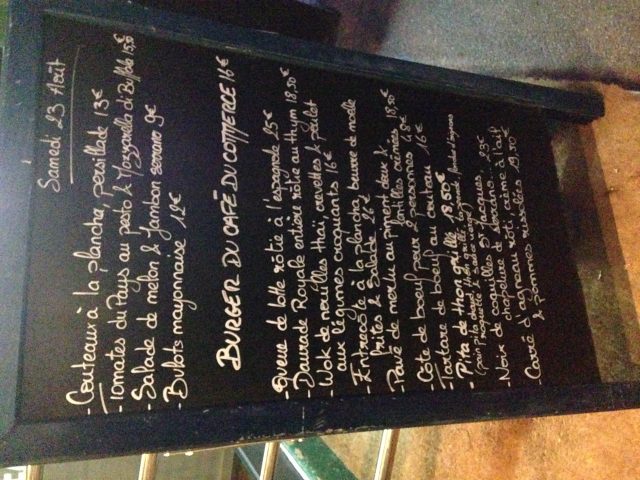 Samedi 23 Août
- Couteaux à la plancha, persillade 13€
- Tomates du Pays au pesto & Mozzarella di Buffala 15,50
- Salade de melon & Jambon serrano 9€
- Bulots mayonnaise 12€
BURGER DU CAFÉ DU COMMERCE 16€
- Queue de lotte rôtie à l'espagnole 25€
- Daurade Royale entière rôtie au thym 18,50€
- Wok de nouilles thaï, crevettes & poulet
aux légumes croquants 16€
- Entrecôte à la plancha, beurre de moelle
frites & Salade
- Pavé de merlu au piment doux &
lentilles crémées 18,50
- Côte de boeuf pour 2 personnes
- Tartare de boeuf au couteau 16€
- Pita de thon grillé 18,50€
- Noix de coquilles St Jacques,
chapelure de chorizo, crème à l'ail 23€
- Carré d'agneau rôti,
& pommes rissolées 19,50€